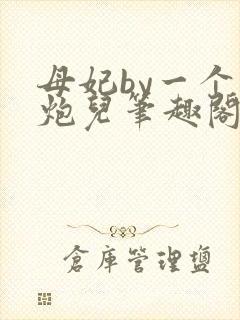 母妃by一个
炮兒筆趣閣
倉庫管理鹽